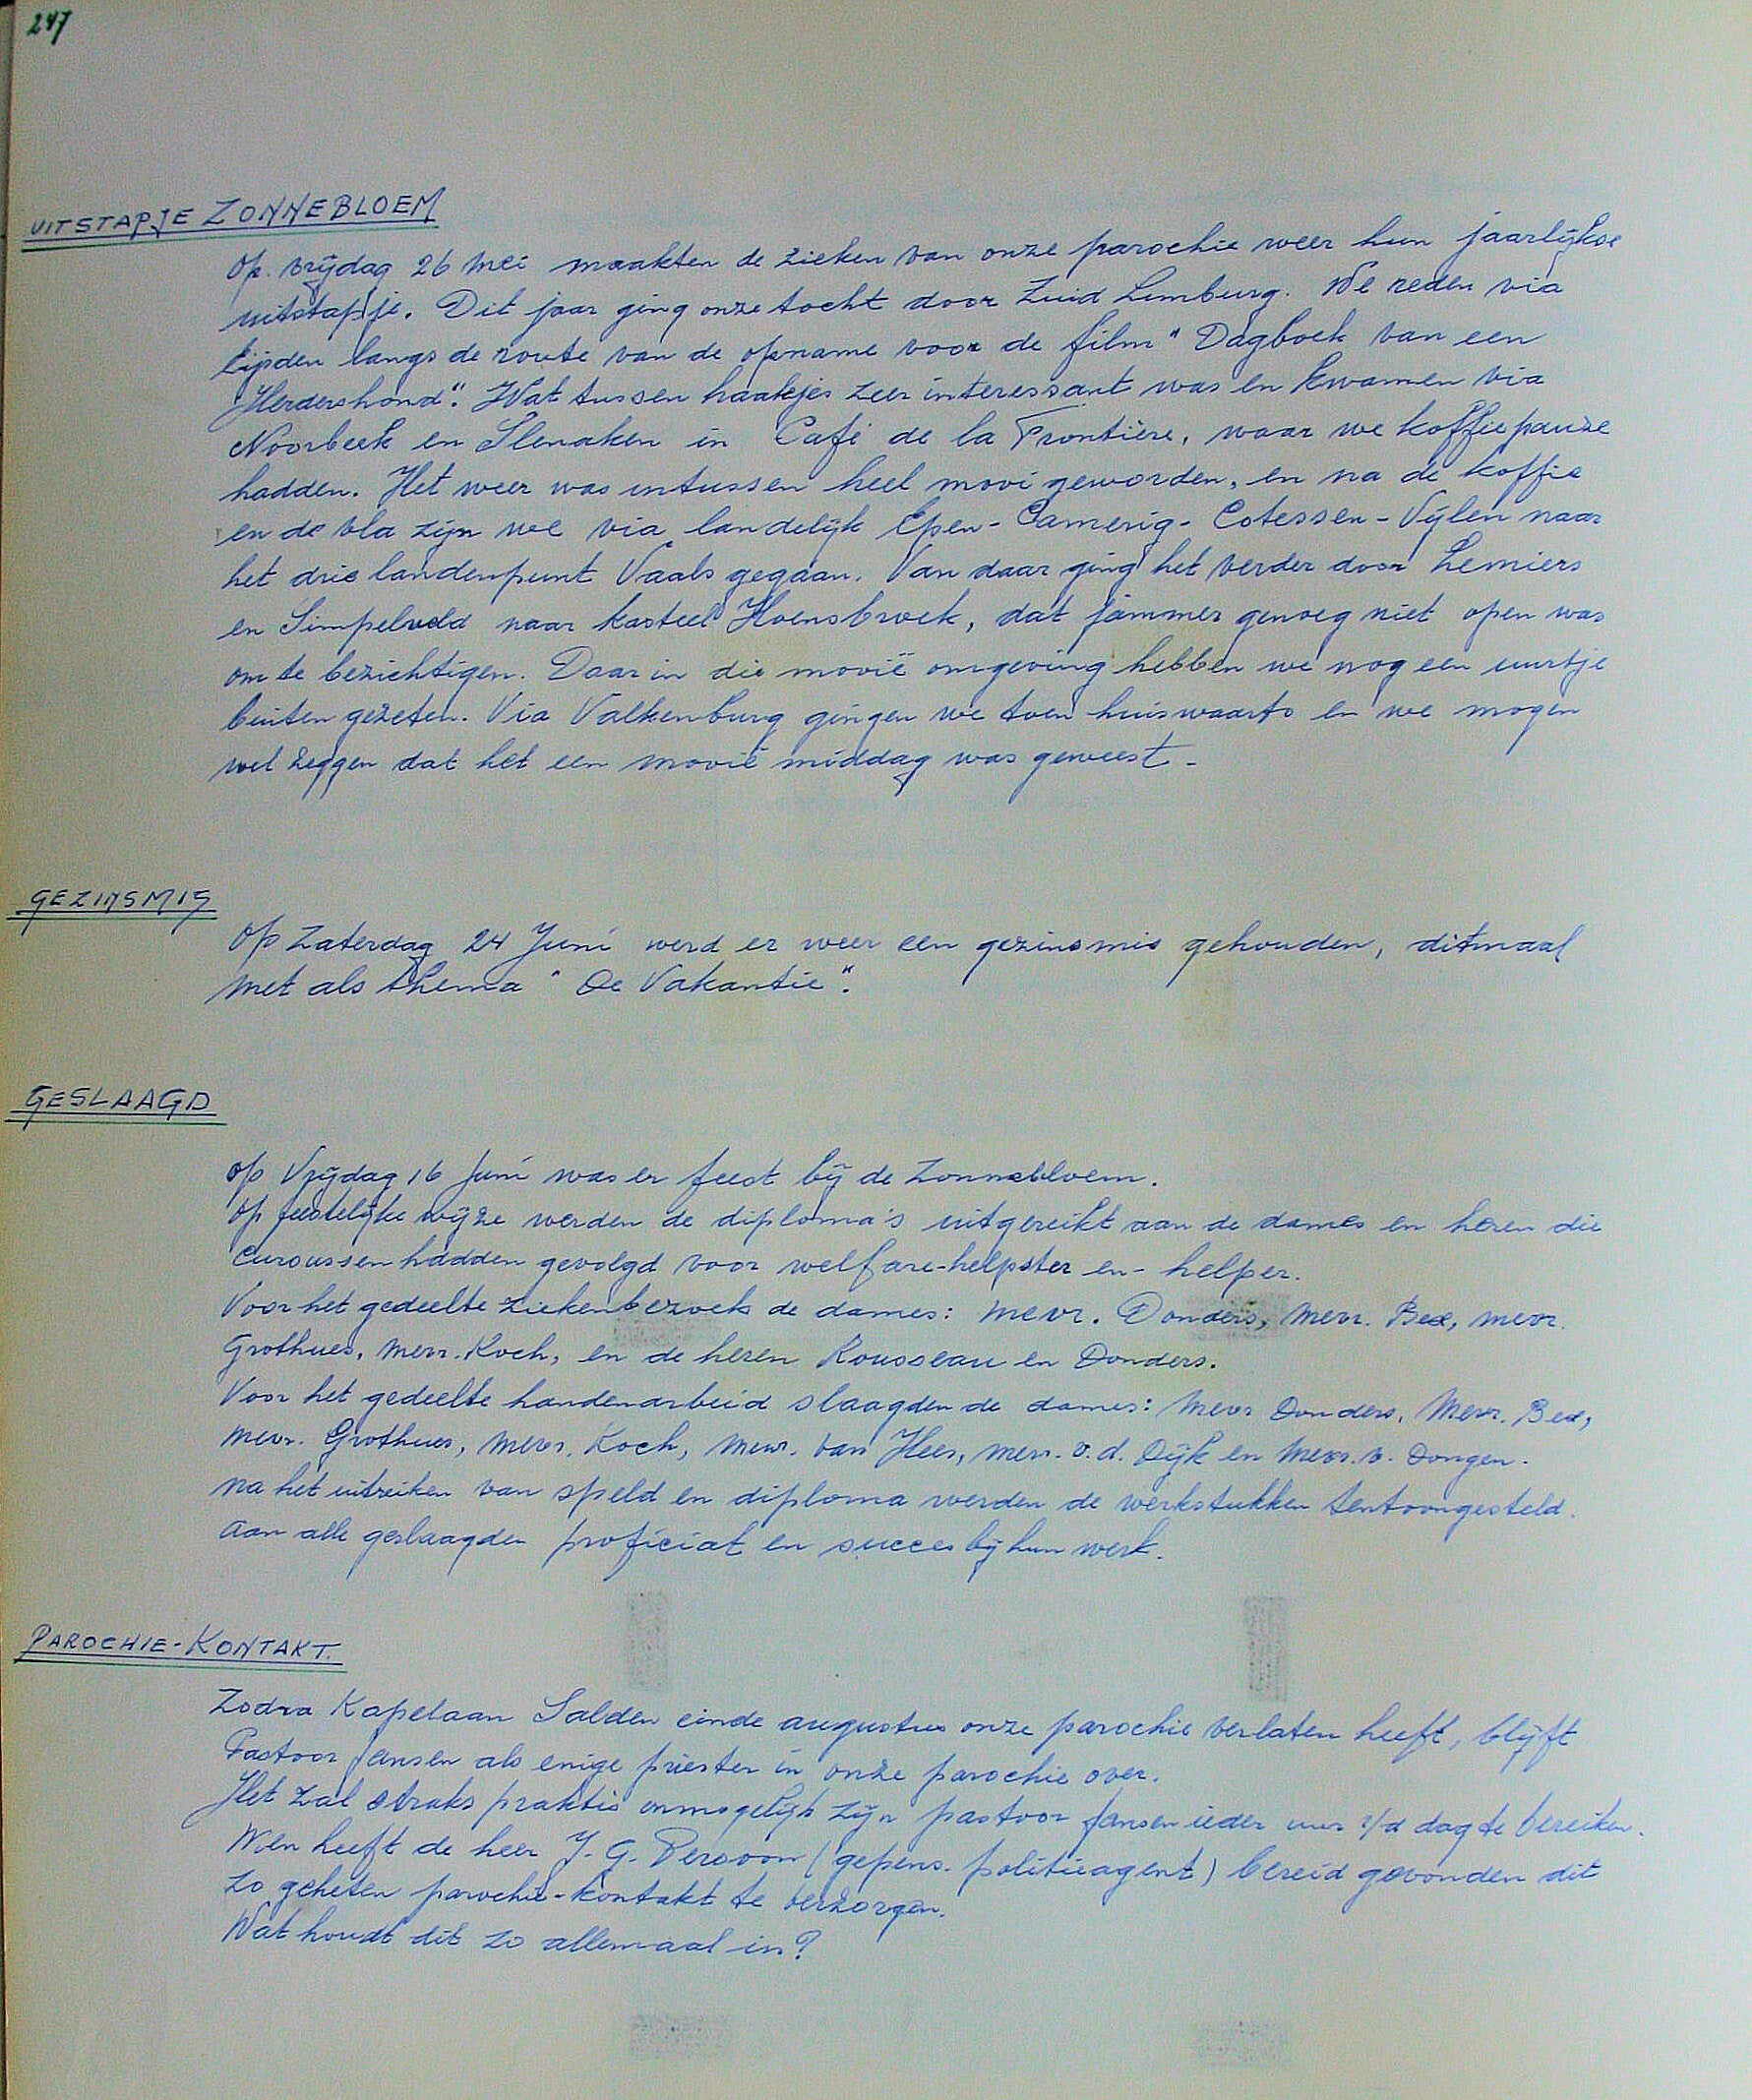 247
UITSTAPJE ZONNEBLOEM
Op. vrijdag 26 Mei maakten de zieken van onze parochie weer hun jaarlijkse
uitstapje. Dit jaar ging onze tocht door Zuid Limburg. We reden via
Eijsden langs de route van de opname voor de film " Dagboek van een
Herdershond". Wat tussen haakjes zeer interessant was en kwamen via
Noorbeek en Slenaken in Café de la Frontière, waar we koffiepauze
hadden. Het weer was intussen heel mooi geworden, en na de koffie
en de vla zijn we via landelijk Epen - Camerig - Cotessen - Vijlen naar
het drielandenpunt Vaals gegaan. Van daar ging het verder door Lemiers
en Simpelveld naar kasteel Hoensbroek, dat jammer genoeg niet open was
om te bezichtigen. Daar in die mooië omgeving hebben we nog een uurtje
buiten gezeten. Via Valkenburg gingen we toen huiswaarts en we mogen
wel zeggen dat het een mooië middag was geweest -
GEZINSMIS
Op Zaterdag 24 Juni werd er weer een gezinsmis gehouden, ditmaal
met als thema " De Vakantie".
GESLAAGD
op Vrijdag 16 Juni was er feest bij de Zonnebloem.
Op feestelijke wijze werden de diploma's uitgereikt aan de dames en heren die
curcussen hadden gevolgd voor welfare-helpster en - helper.
Voor het gedeelte ziekenbezoek de dames: mevr. Donders, mevr. Bex, mevr.
Grothues, mevr. Koch, en de heren Rousseau en Donders.
Voor het gedeelte handenarbeid slaagden de dames: mevr Donders, Mevr. Bex,
mevr. Grothues, mevr. Koch, mevr. van Hees, mevr. v.d. Dijk en mevr. v. Dongen.
na het uitreiken van speld en diploma werden de werkstukken tentoongesteld.
aan alle geslaagden proficiat en succes bij hun werk.
PAROCHIE-KONTAKT.
Zodra Kapelaan Salden einde augustus onze parochie verlaten heeft, blijft
Pastoor Jansen als enige priester in onze parochie over.
Het zal straks praktis onmogelijk zijn pastoor Jansen ieder uur v/d dag te bereiken.
Men heeft de heer J. G. Persoon (gepens. politieagent) bereid gevonden dit
zo geheten parochie-kontakt te verzorgen.
Wat houdt dit zo allemaal in?